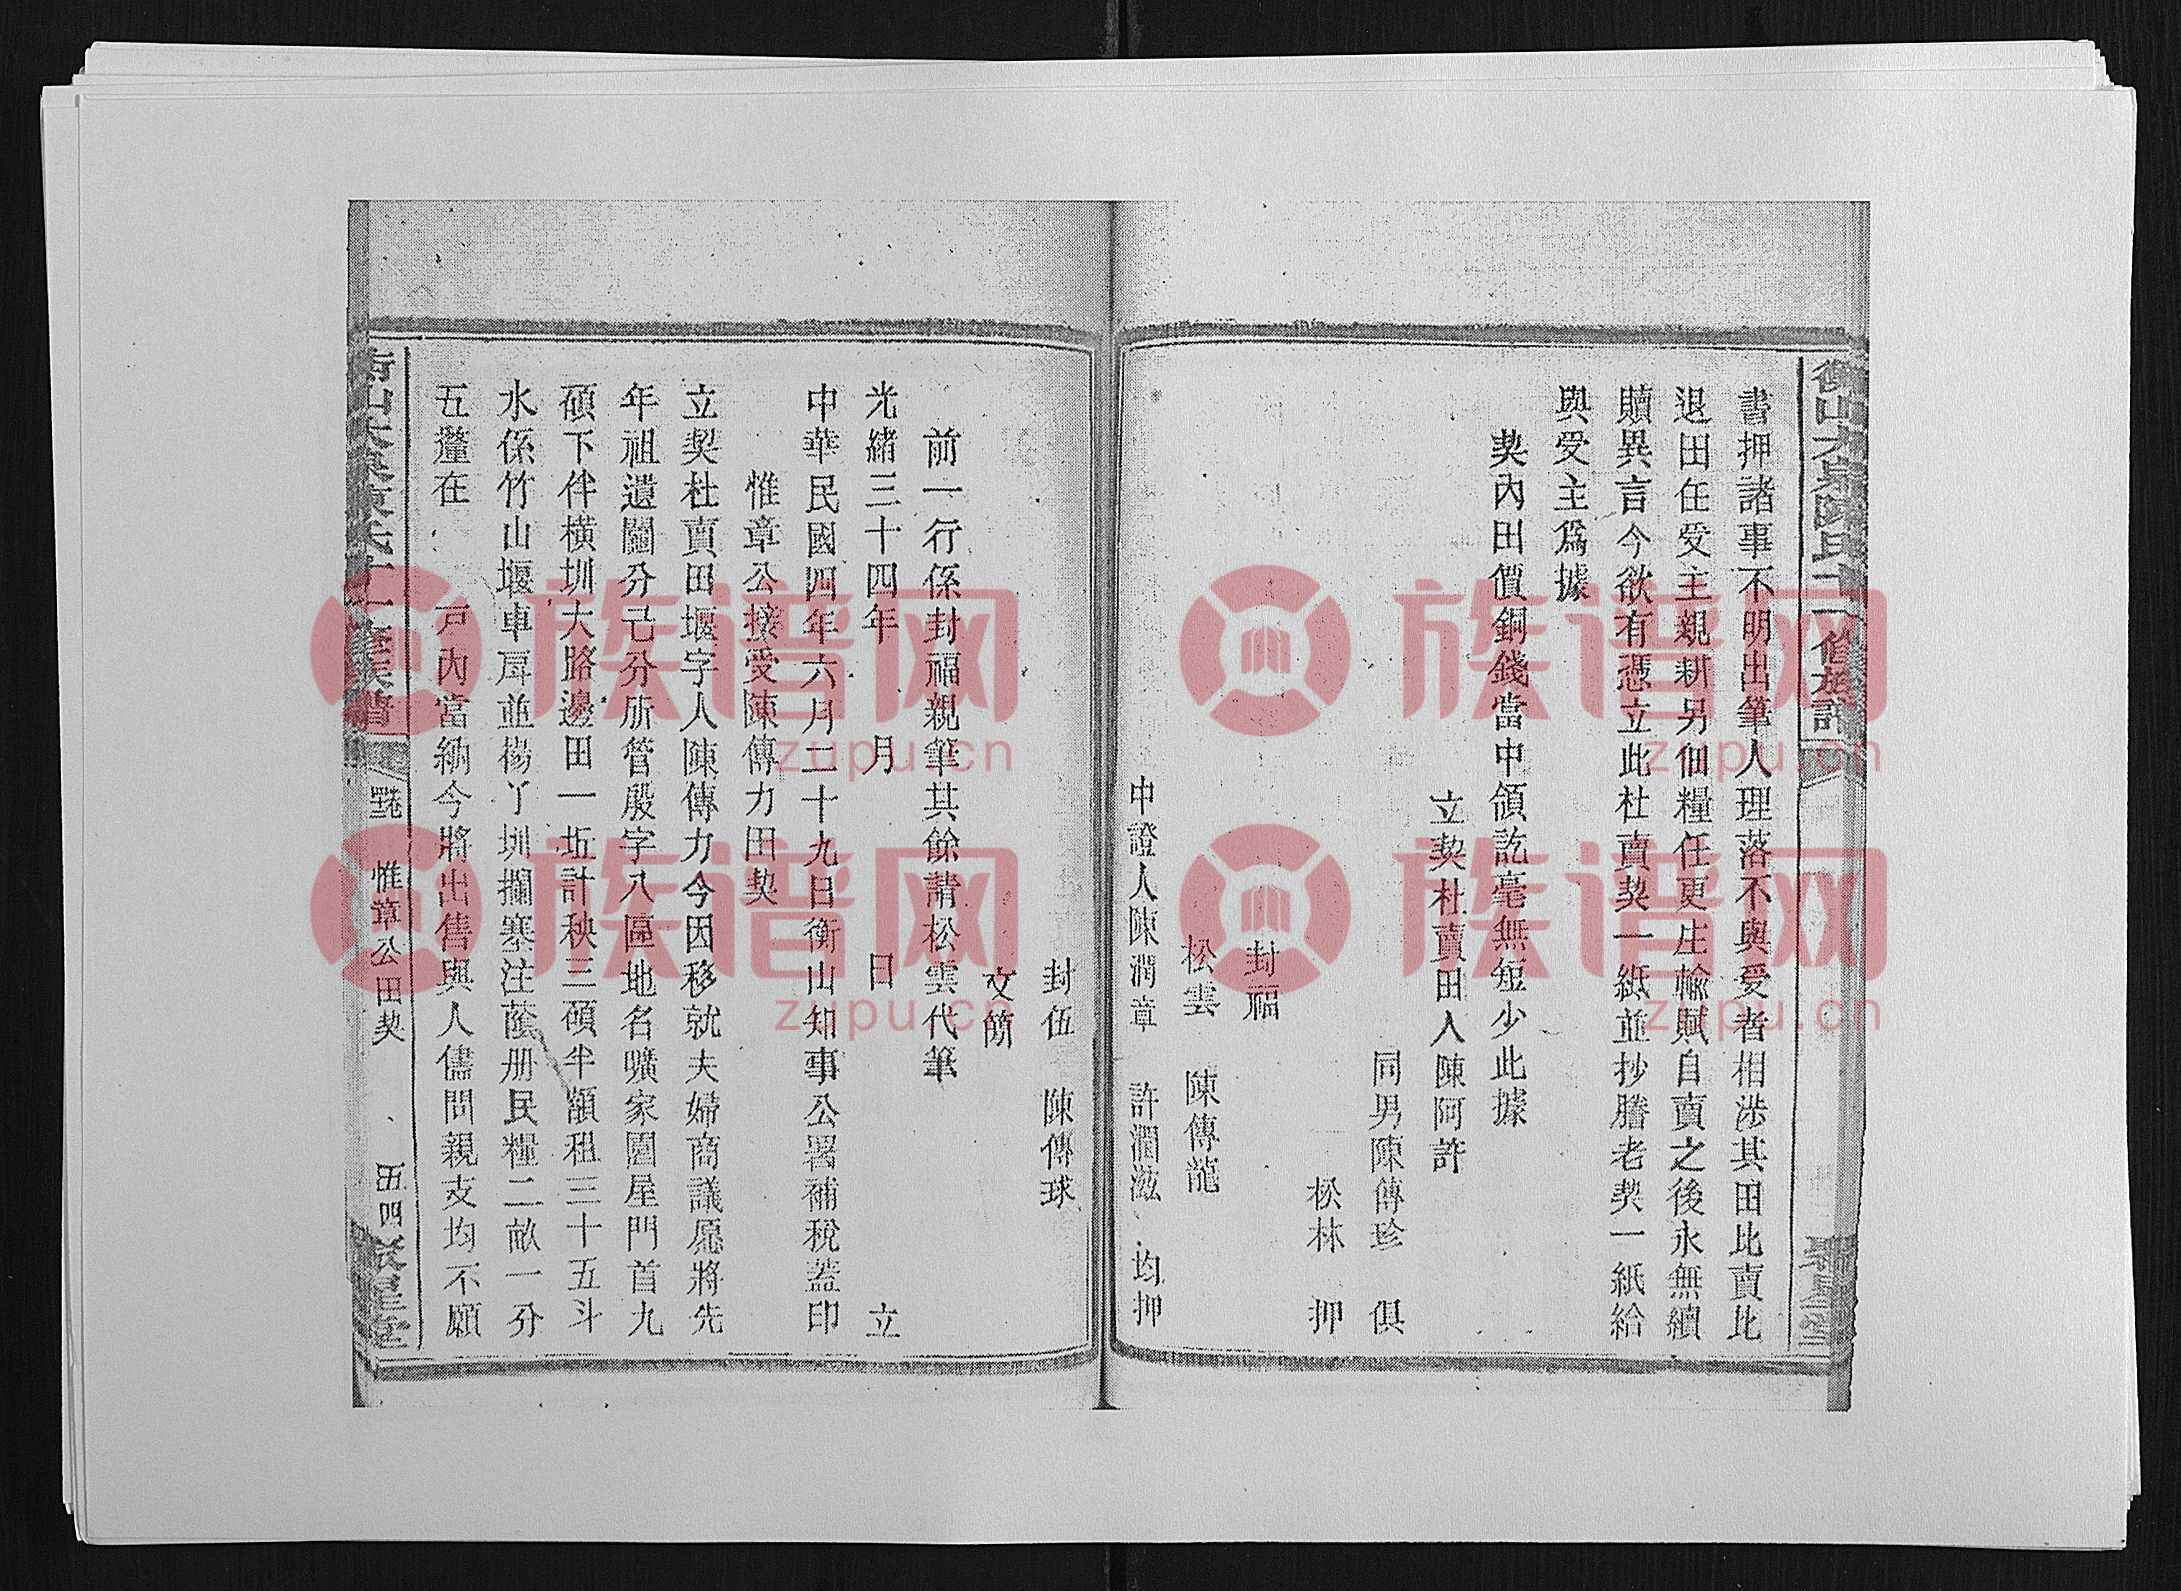 書押諸事不明出筆人理落不與受者相涉其田比賣比
退田任受主親耕另佃糧任更庄輸賦自賣之後永無續
贖異言今欲有憑立此杜賣契一紙並抄謄老契一紙給
與受主爲據
契內田價銅錢當中領訖毫無短少此據
立契杜賣田人陳阿許
同男陳傳珍 俱
松林 押
封福
松雲 陳傳龍
中證人陳潤章 許潤滋 均押
封伍 陳傳球
文簡
前一行係封福親筆其餘請松雲代筆
光緒三十四年 月 日 立
中華民國四年六月二十九日衡山知事公署補稅蓋印
惟章公接受陳傳力田契
立契杜賣田堰字人陳傳力今因移就夫婦商議愿將先
年祖遺鬮分已分所管殷字八區地名曠家園屋門首九
碩下伴橫圳大路邊田一坵計秧三碩半額租三十五斗
水係竹山堰車戽並楊丫圳攔寨注蔭册民糧二畝一分
五釐在 戸內當納今將出售與人儘問親支均不願
惟章公田契
五四
聚星堂
族谱网
zupu.cn
族谱网
zupu.cn
族谱网
zupu.cn
族谱网
zupu.cn